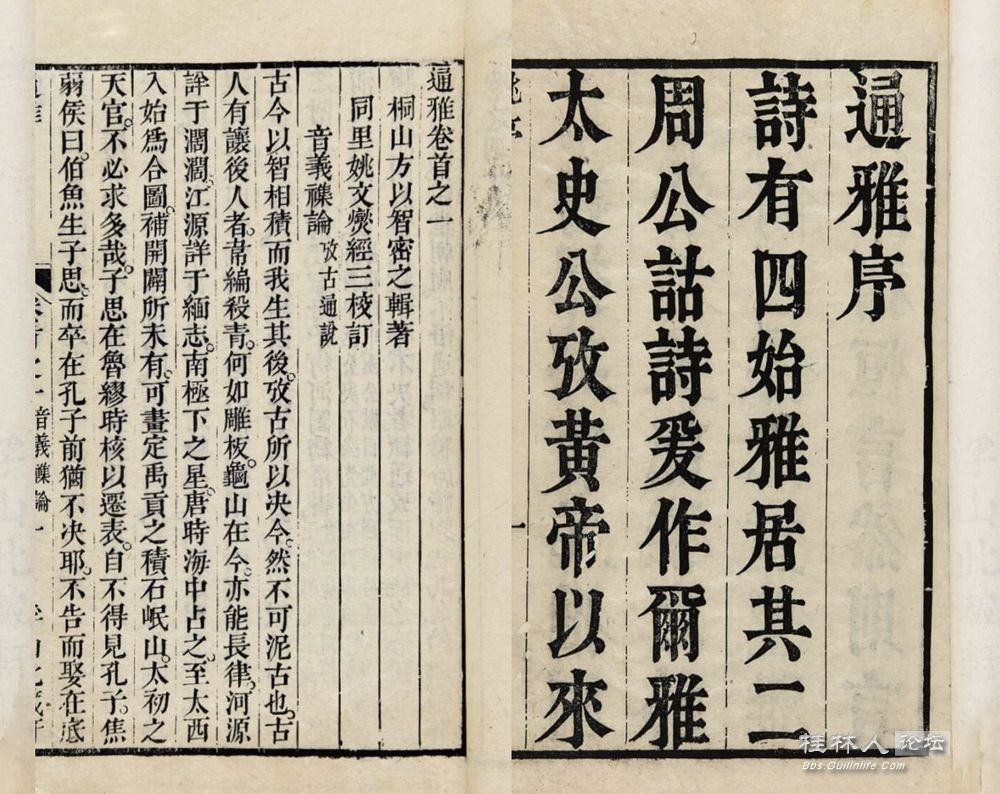 通雅序
詩有四始雅居其二
周公詁詩爰作爾雅
太史公攷黃帝以來
一
通雅卷首之一
桐山方以智密之輯著
同里姚文燮經三校訂
音義雜論 攷古通說
古今以智相積而我生其後。攷古所以决今。然不可泥古也。古
人有讓後人者。韋編殺青。何如雕板。龜山在今。亦能長律。河源
詳于濶濶。江源詳于緬志。南極下之星。唐時海中占之。至太西
入始爲合圖。補開闢所未有。可畫定禹貢之積石岷山。太初之
天官。不必求多哉。子思在魯繆時核以遷表。自不得見孔子。焦
弱侯曰。伯魚生子思。而卒在孔子前猶不决耶。不告而娶在底
音義雜論 一
桂林人论坛
Bbs.Guilinlife.com